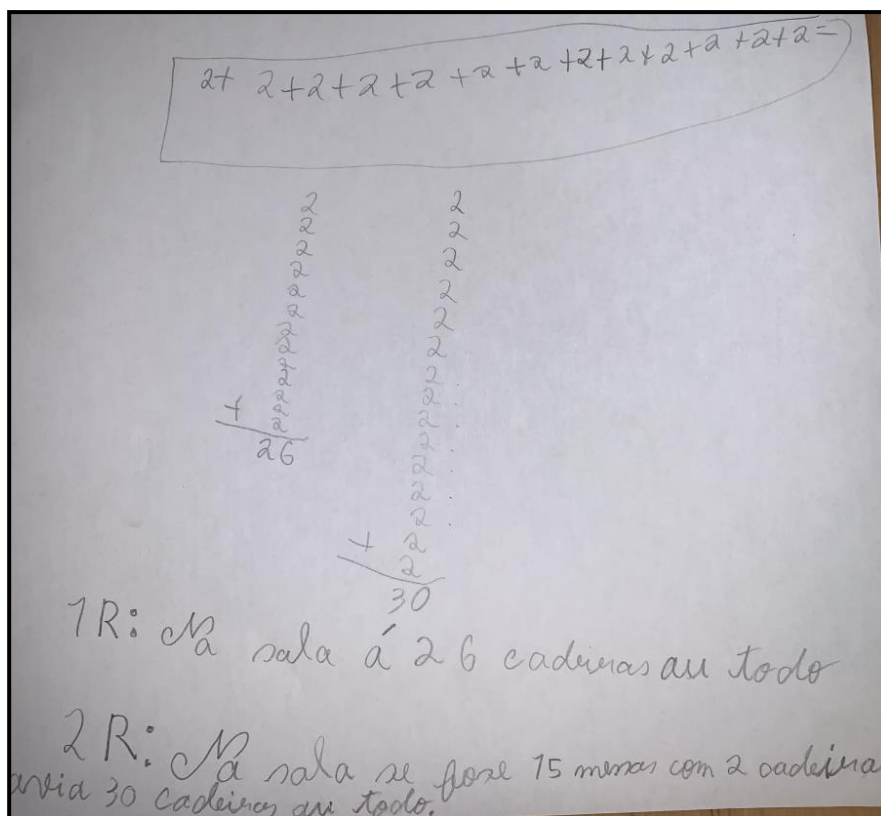 2+ 2+2+2+2+2+2+2+2+2+2+2+2=
2
2
2
2
2
2
2
2
2
2
2
+ 2
2
26
2
2
2
2
2
2
2
2
2
2
2
2
2
+ 2
2
30
1R: Na sala á 26 cadeiras au todo
2R: Na sala se fose 15 mesas com 2 cadeira
avia 30 cadeiras au todo.